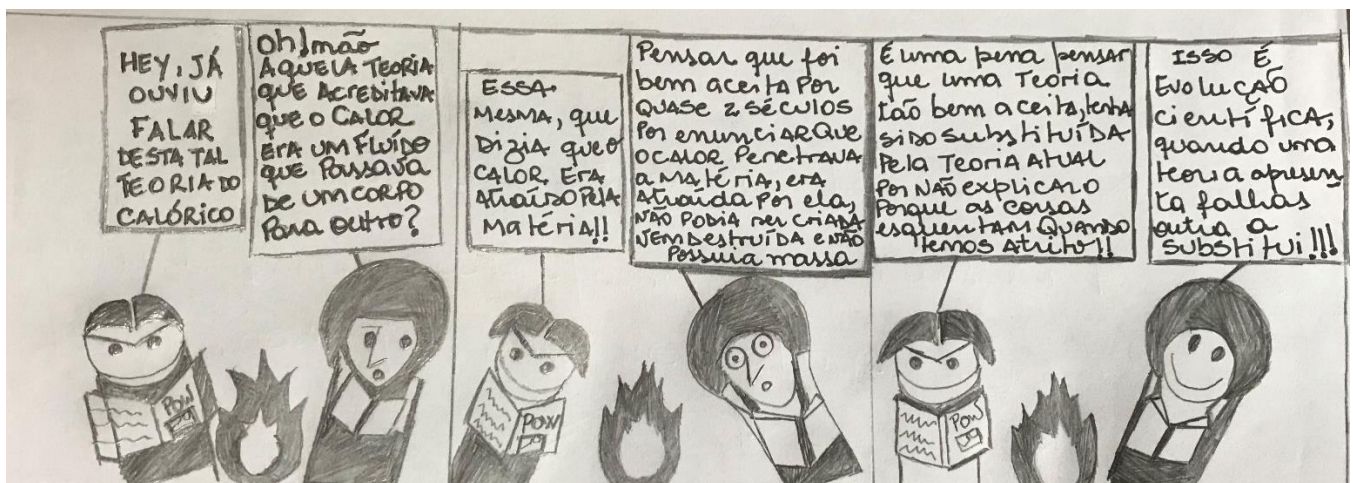 HEY, JÁ
OUVIU
FALAR
DESTA TAL
TEORIA DO
CALÓRICO
Oh! mão
AQUELA TEORIA
QUE ACREDITAVA
QUE O CALOR
ERA UM FLUÍDO
QUE PASSAVA
DE UM CORPO
Para outro?
ESSA
MESMA, QUE
DIZIA QUE O
CALOR ERA
ATRAÍDO PELA
MATÉRIA!!
Pensar que foi
bem aceita POR
QUASE 2 SÉCULOS
POR ENUNCIAR QUE
O CALOR PENETRAVA
A MATÉRIA, ERA
ATRAÍDA POR ELA,
NÃO PODIA SER CRIADA
NEM DESTRUÍDA E NÃO
Possuia massa
É uma pena pensar
que uma Teoria
tão bem aceita, tenha
SIDO SUBSTITUÍDA
Pela TEORIA ATUAL
POR NÃO EXPLICAR O
Porque as coisas
esquentam QUANDO
temos ATRITO!!
ISSO É
EVOLUÇÃO
CIENTÍFICA,
quando uma
teoria apresen
ta falhas
outra a
SUBSTITUI!!!
POW
POW
POW